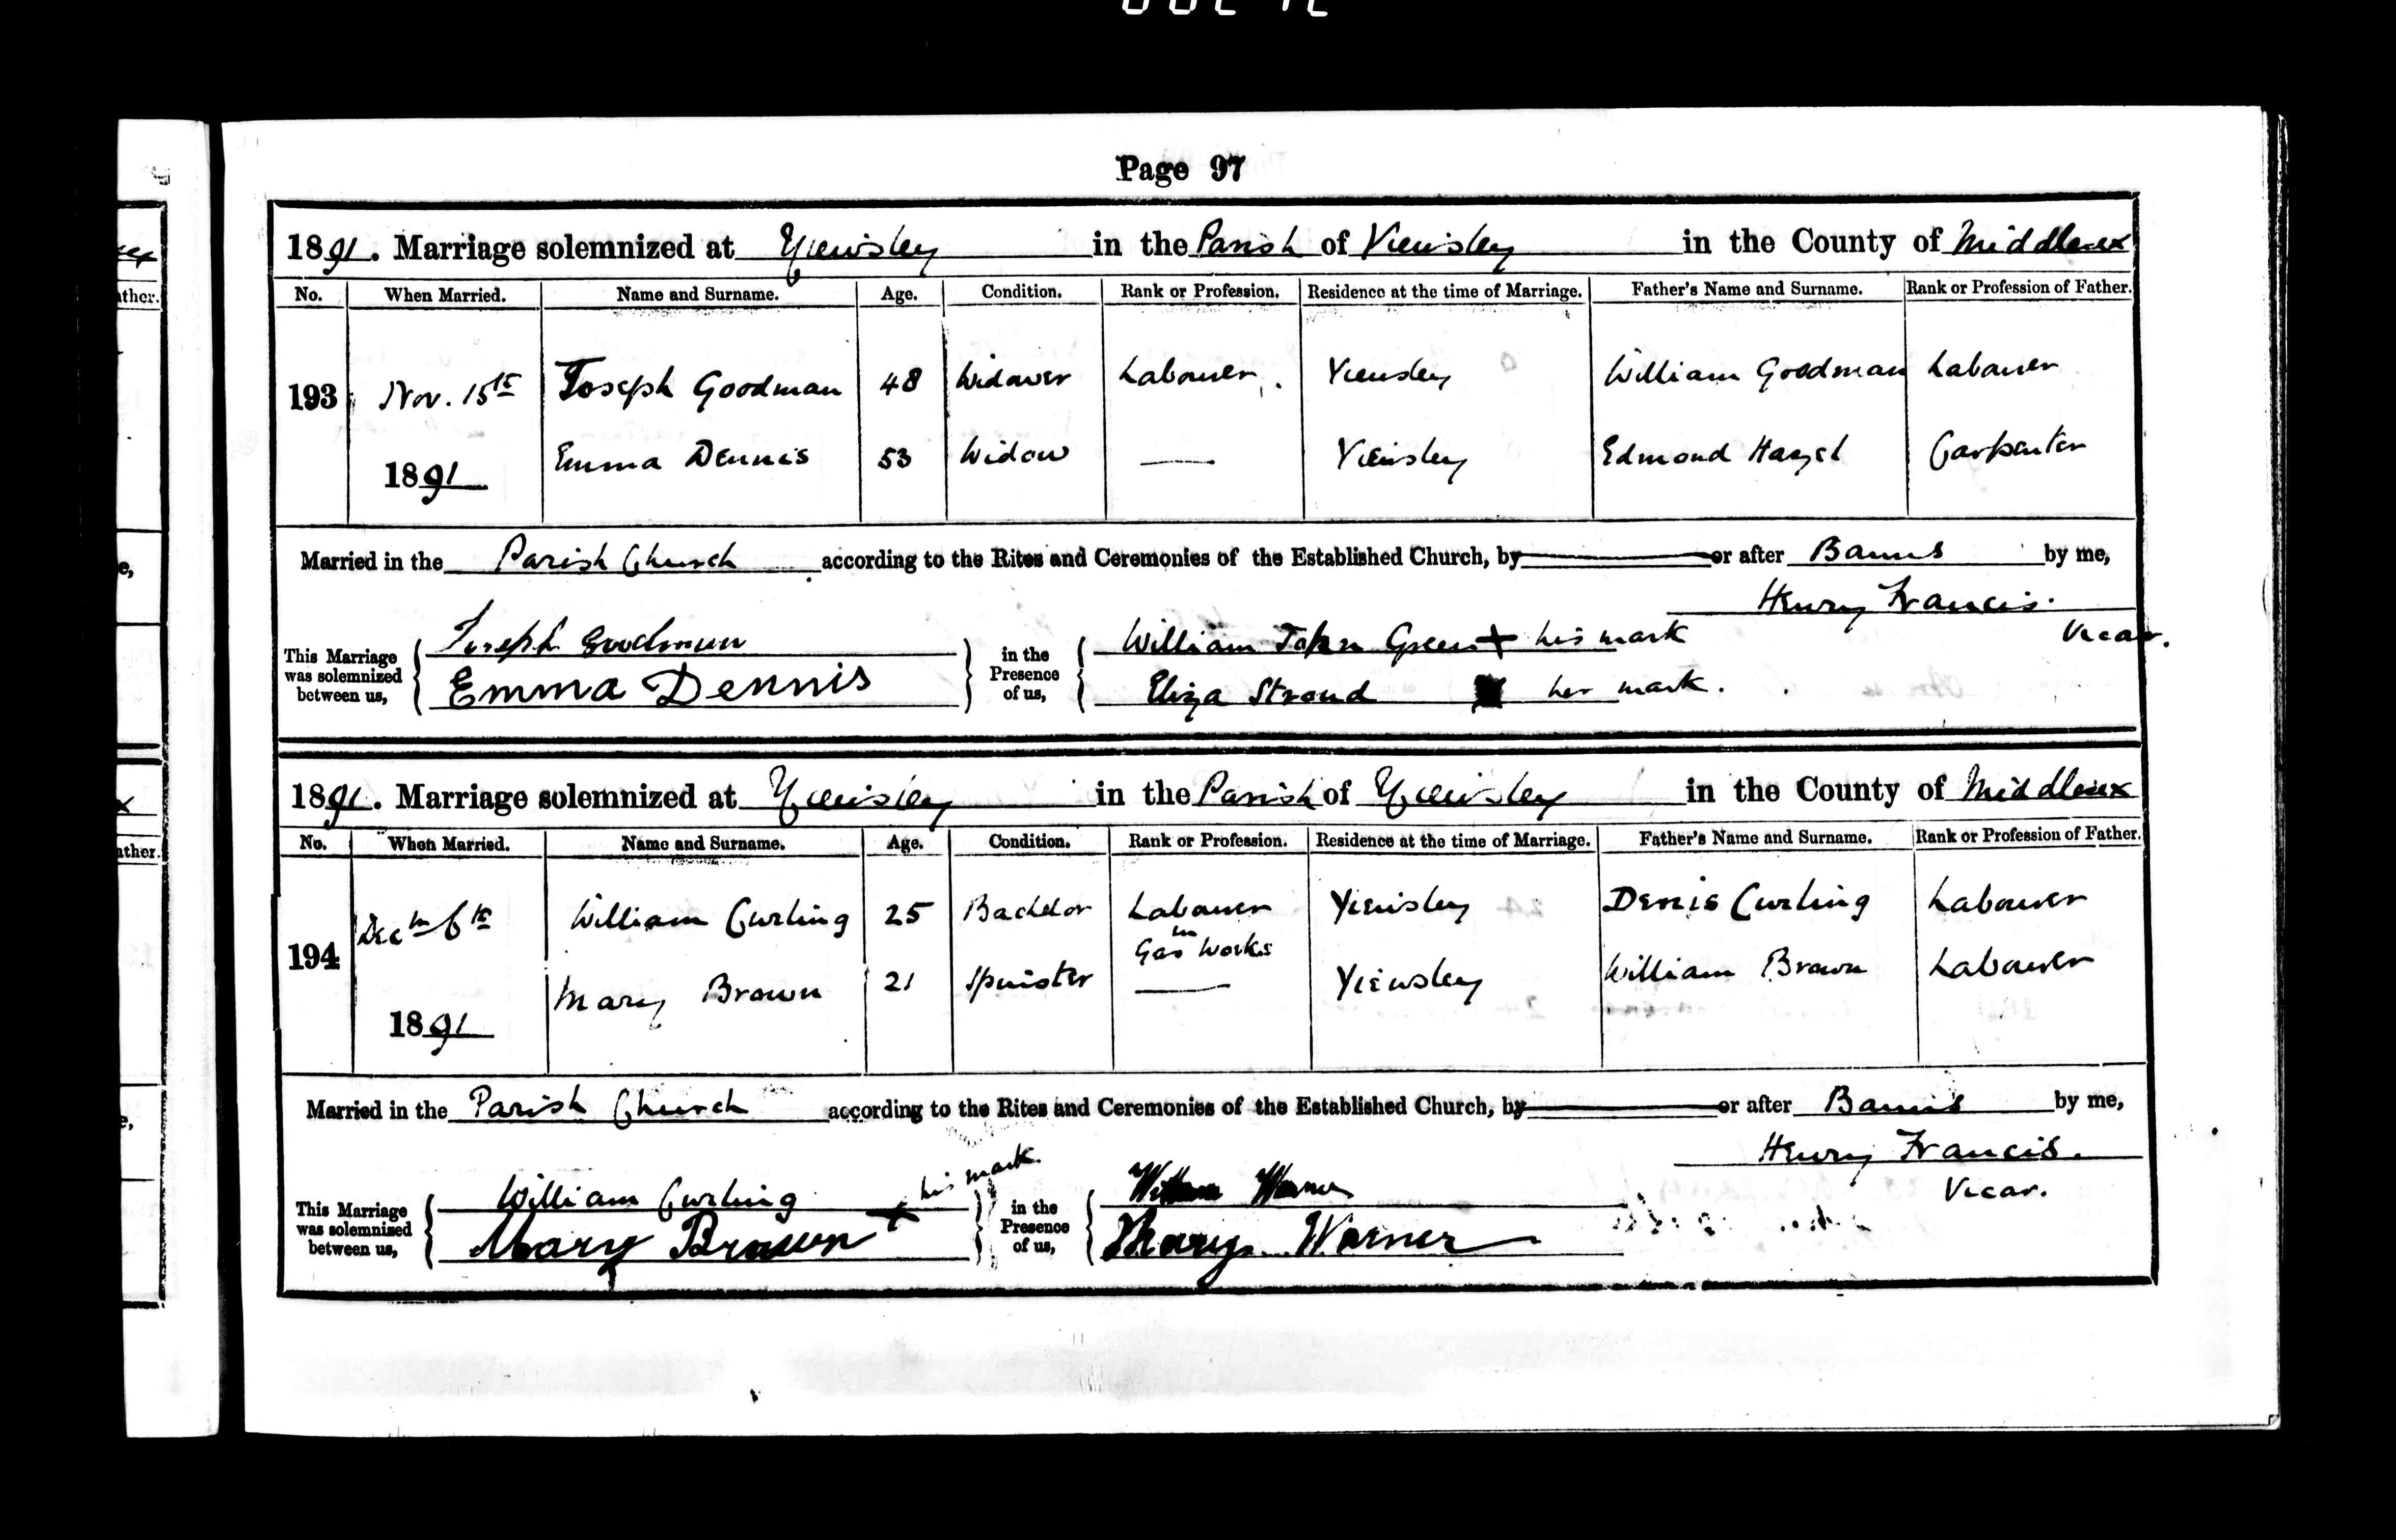 Page 97
1891. Marriage solemnized at Yiewsley in the Parish of Yiewsley in the County of Middlesex
No. When Married. Name and Surname. Age. Condition. Rank or Profession. Residence at the time of Marriage. Father's Name and Surname. Rank or Profession of Father.
193 Nov. 15th Joseph Goodman 48 Widower Labourer. Yiewsley William Goodman Labourer
1891 Emma Dennis 53 Widow — Yiewsley Edmond Hazel Carpenter
Married in the Parish Church according to the Rites and Ceremonies of the Established Church, by — or after Banns by me,
Henry Francis.
Vicar.
This Marriage was solemnized between us, Joseph Goodman in the Presence of us, William John Green + his mark
Emma Dennis Eliza Stroud her mark.
1891. Marriage solemnized at Yiewsley in the Parish of Yiewsley in the County of Middlesex
No. When Married. Name and Surname. Age. Condition. Rank or Profession. Residence at the time of Marriage. Father's Name and Surname. Rank or Profession of Father.
194 Decm 6th William Curling 25 Bachelor Labourer in Gas Works Yiewsley Denis Curling Labourer
1891 Mary Brown 21 Spinster — Yiewsley William Brown Labourer
Married in the Parish Church according to the Rites and Ceremonies of the Established Church, by — or after Banns by me,
Henry Francis.
Vicar.
This Marriage was solemnized between us, William Curling + his mark. in the Presence of us, William Warner
Mary Brown Mary Warner